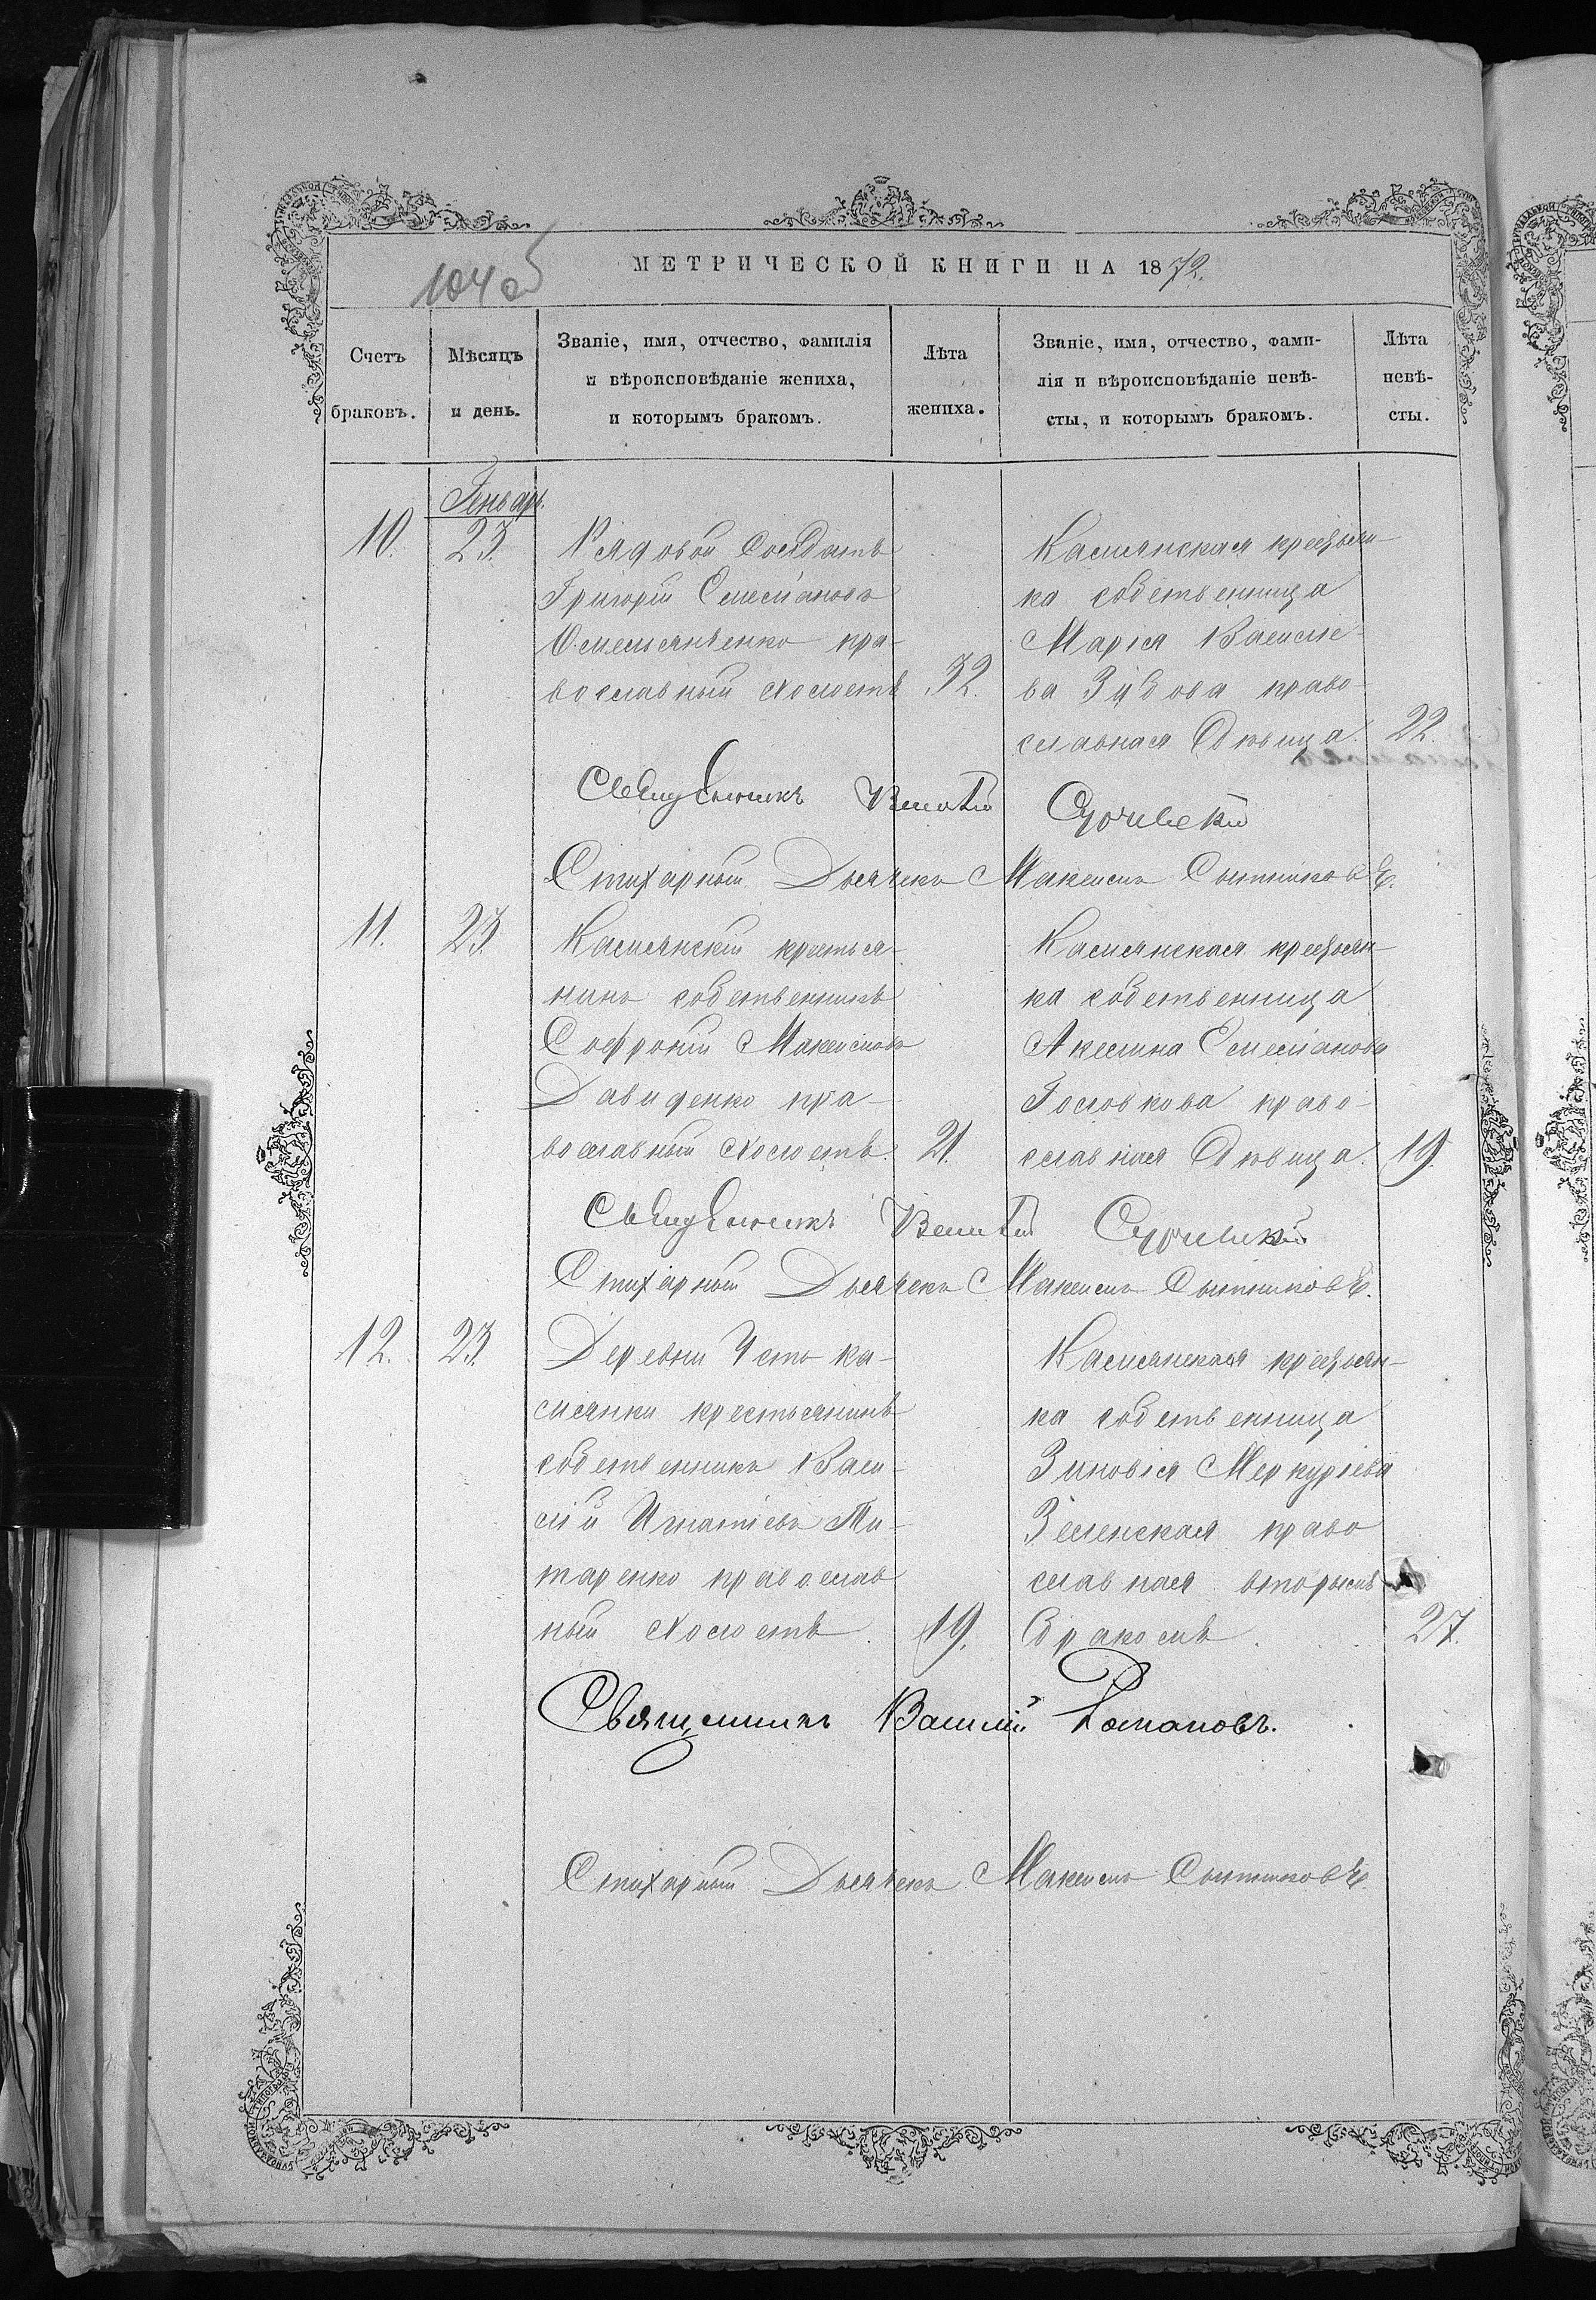 104 об
МЕТРИЧЕСКОЙ КНИГИ НА 1872.
Счетъ браковъ.
Мѣсяцъ и день.
Званіе, имя, отчество, фамилія
и вѣроисповѣданіе жениха,
и которымъ бракомъ.
Лѣта жениха.
Званіе, имя, отчество, фами-
лія и вѣроисповѣданіе невѣ-
сты, и которымъ бракомъ.
Лѣта невѣ-
сты.
Генварь.
10. 23.
Рядовой Солдатъ
Григорій Емеліановъ
Омельянченко пра-
вославный холостъ 32.
Камянская крестьян-
ка собственница
Марія Васильє-
ва Зубова право-
славная Дѣвица. 22.
Священникъ Василій
Стихарный Дьячекъ Максимъ Сытниковъ.
11. 23.
Камянскій крестья-
нинъ собственникъ
Софроній Максимовъ
Давиденко пра-
вославный холостъ. 21.
Камянская крестьян-
ка собственница
Акилина Емеліанова
Головкова право-
славная Дѣвица. 19.
Священникъ Василій
Стихарный Дьячекъ Максимъ Сытниковъ.
12. 23.
Деревни Усть ка-
мянки крестьянинъ
собственникъ Васи-
лій Игнатіевъ Ти-
таренко православ
ный холостъ. 19.
Камянская крестьян-
ка собственница
Зиновія Меркуріева
Зеленская право
славная вторымъ
бракомъ. 27.
Священникъ Василій Романовъ.
Стихарный Дьячекъ Максимъ Сытниковъ.